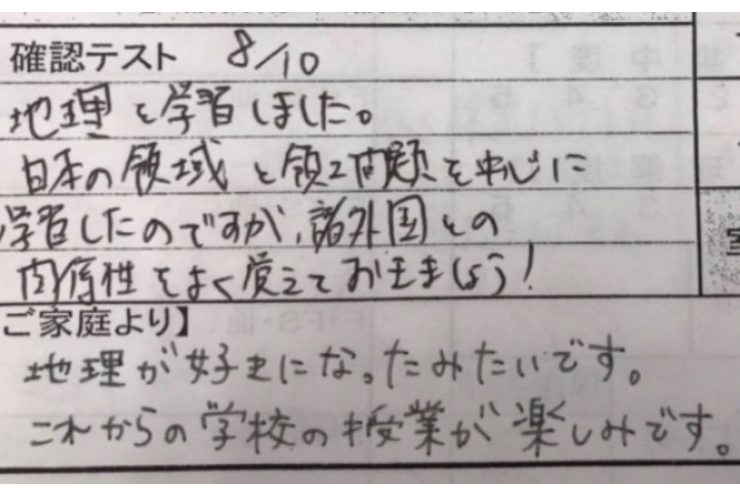 確認テスト 8/10
地理を学習しました。
日本の領域と領土問題を中心に
学習したのですが、諸外国との
関係性をよく覚えておきましょう!
ご家庭より】
地理が好きになったみたいです。
これからの学校の授業が楽しみです。